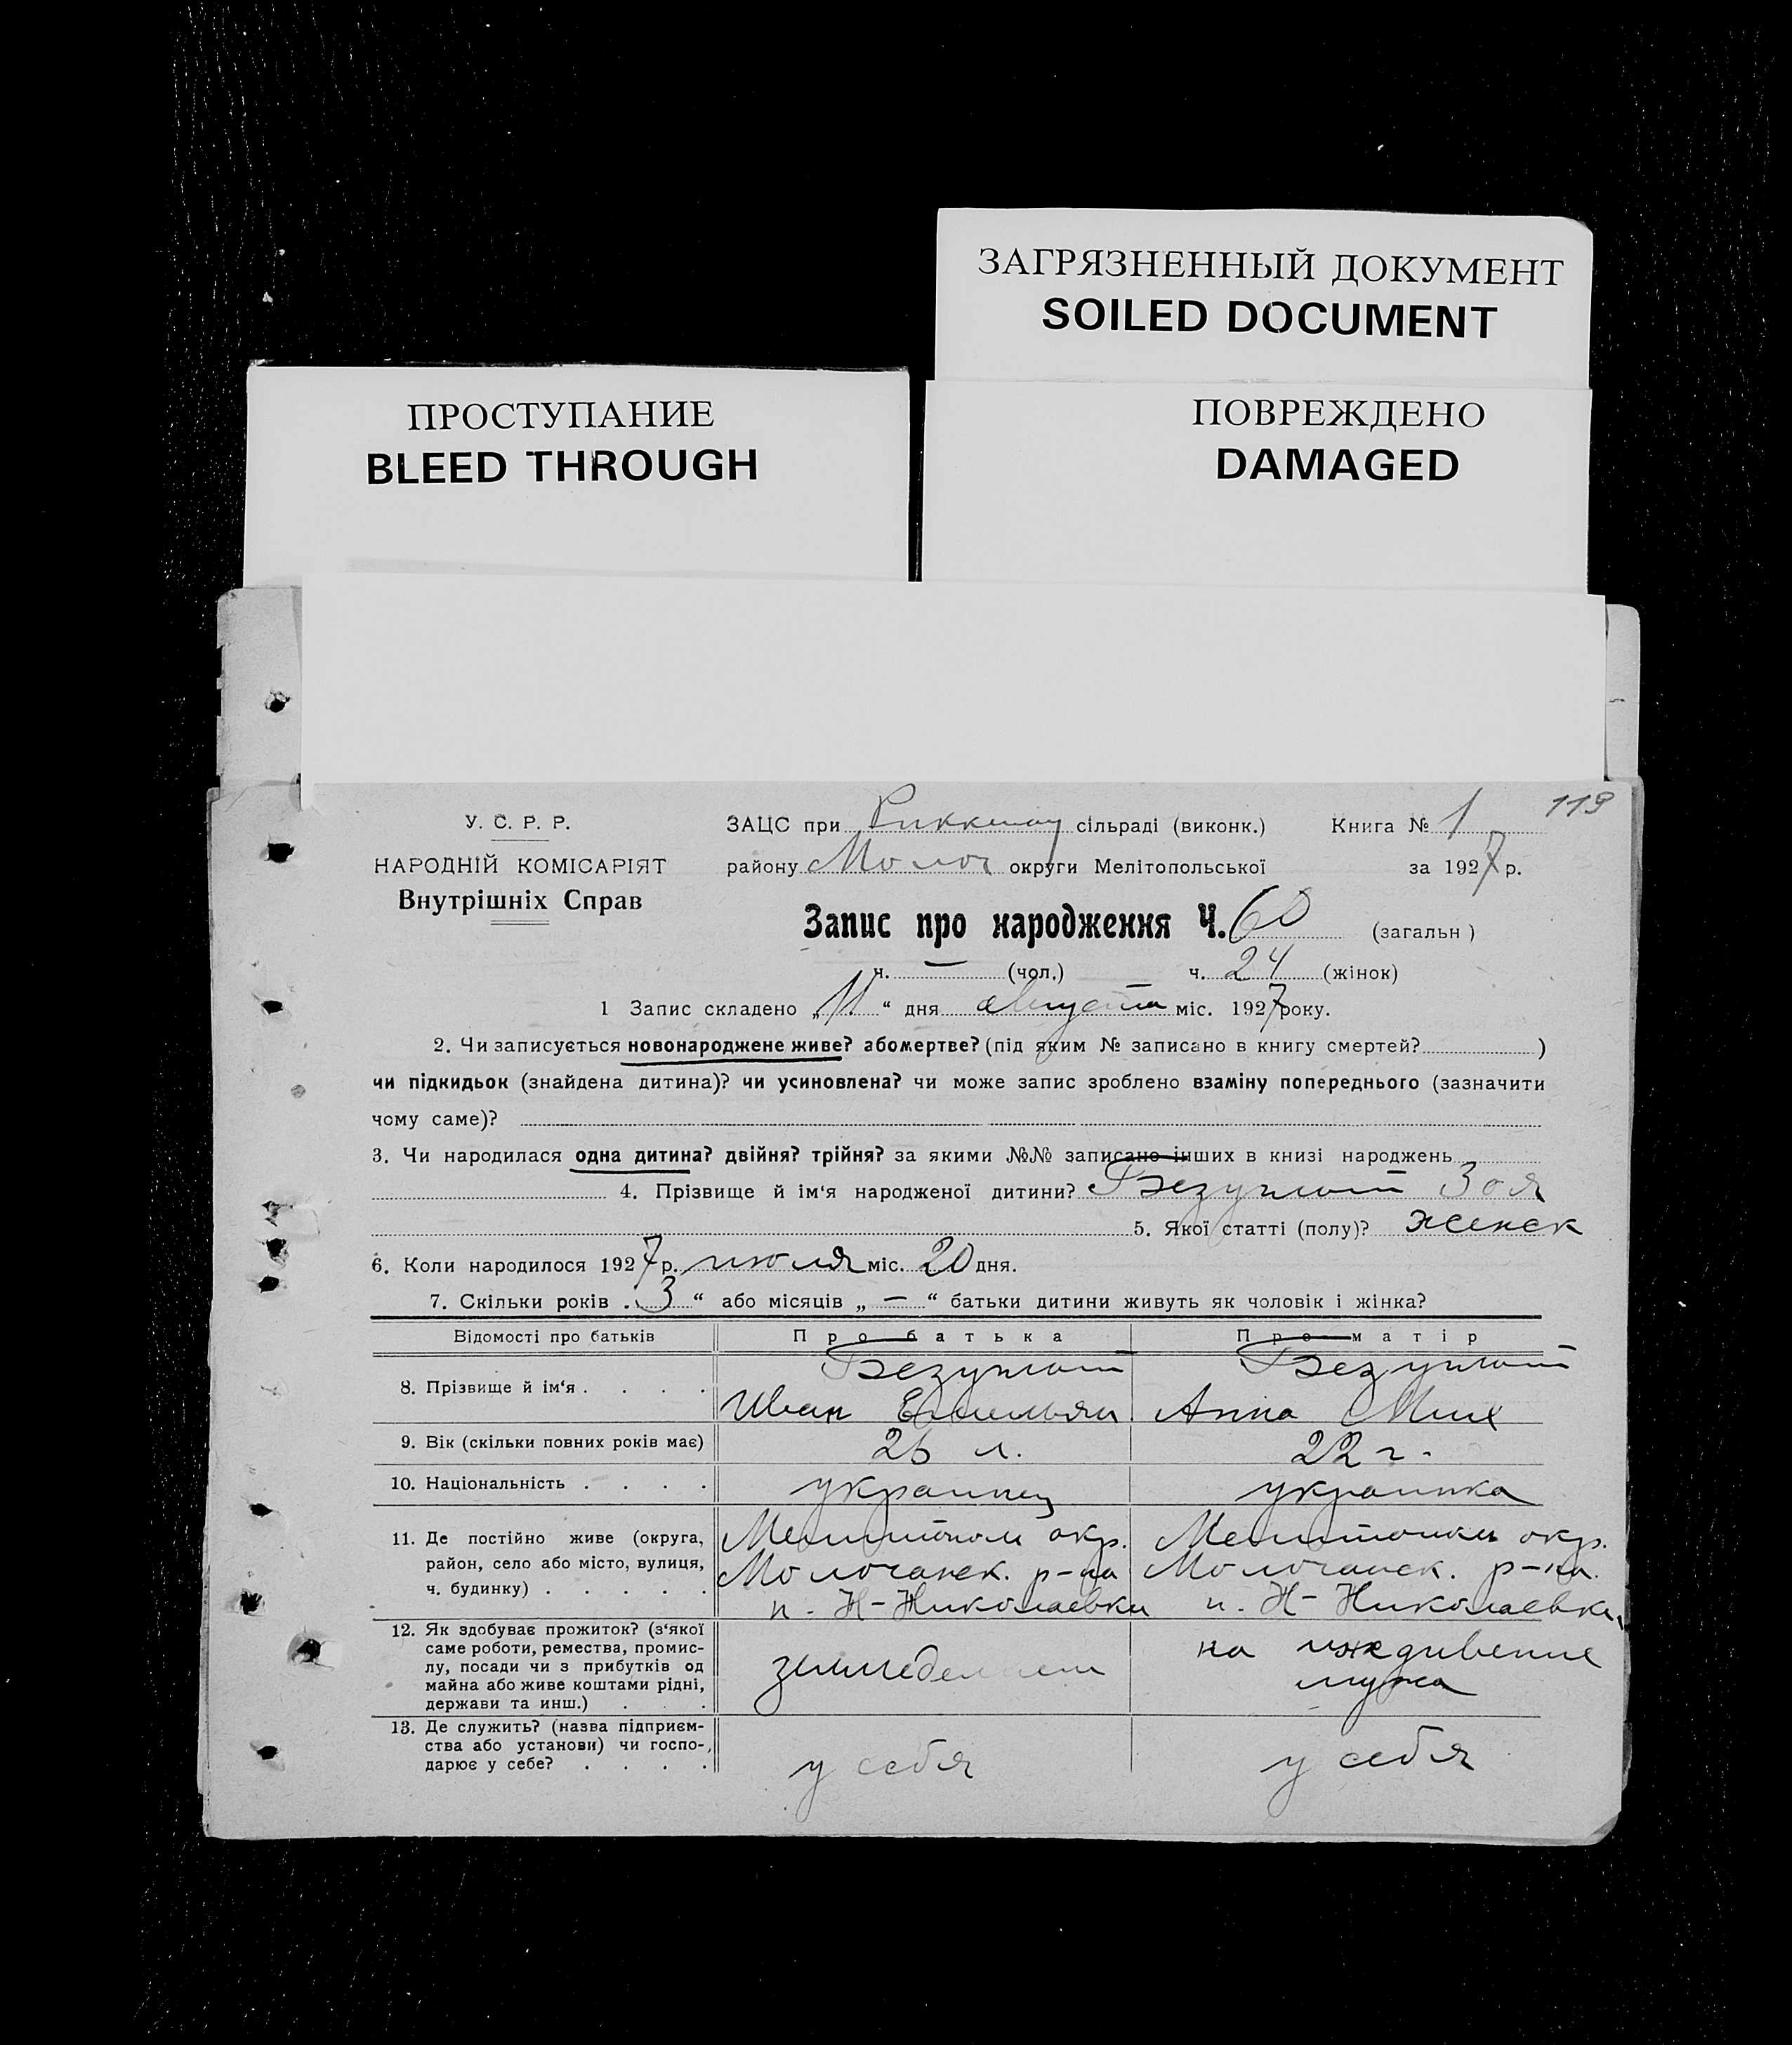 ЗАГРЯЗНЕННЫЙ ДОКУМЕНТ
SOILED DOCUMENT
ПРОСТУПАНИЕ
BLEED THROUGH
ПОВРЕЖДЕНО
DAMAGED
119
У. С. Р. Р.
НАРОДНІЙ КОМІСАРІЯТ
Внутрішніх Справ
ЗАЦС при Риккенау сільраді (виконк.) Книга № 1
району Молоч округи Мелітопольської за 1927 р.
Запис про народження Ч. 60 (загальн)
ч. — (чол.) ч. 24 (жінок)
1 Запис складено „11“ дня августа міс. 1927 року.
2. Чи записується новонароджене живе? або мертве? (під яким № записано в книгу смертей? )
чи підкидьок (знайдена дитина)? чи усиновлена? чи може запис зроблено взаміну попереднього (зазначити
чому саме)?
3. Чи народилася одна дитина? двійня? трійня? за якими №№ записано інших в книзі народжень
4. Прізвище й ім‘я народженої дитини? Безуглый Зоя
5. Якої статті (полу)? женск
6. Коли народилося 1927 р. июля міс. 20 дня.
7. Скільки років „3“ або місяців „—“ батьки дитини живуть як чоловік і жінка?
Відомості про батьків Про батька Про матір
8. Прізвище й ім‘я . . . . Безуглый Безуглый
Иван Емельян Анна Мих
9. Вік (скільки повних років має) 26 л. 22 г.
10. Національність . . . . украинец украинка
11. Де постійно живе (округа, район, село або місто, вулиця, ч. будинку) . . . . .
Мелитопол окр. Молочанск. р-на п. Н-Николаевки
Молочанск. р-на. п. Н-Николаевки
12. Як здобуває прожиток? (з‘якої саме роботи, ремества, промислу, посади чи з прибутків од майна або живе коштами рідні, держави та инш.) . .
земледелием
на иждивение мужа
13. Де служить? (назва підприємства або установи) чи господарює у себе? . . . .
у себя у себя